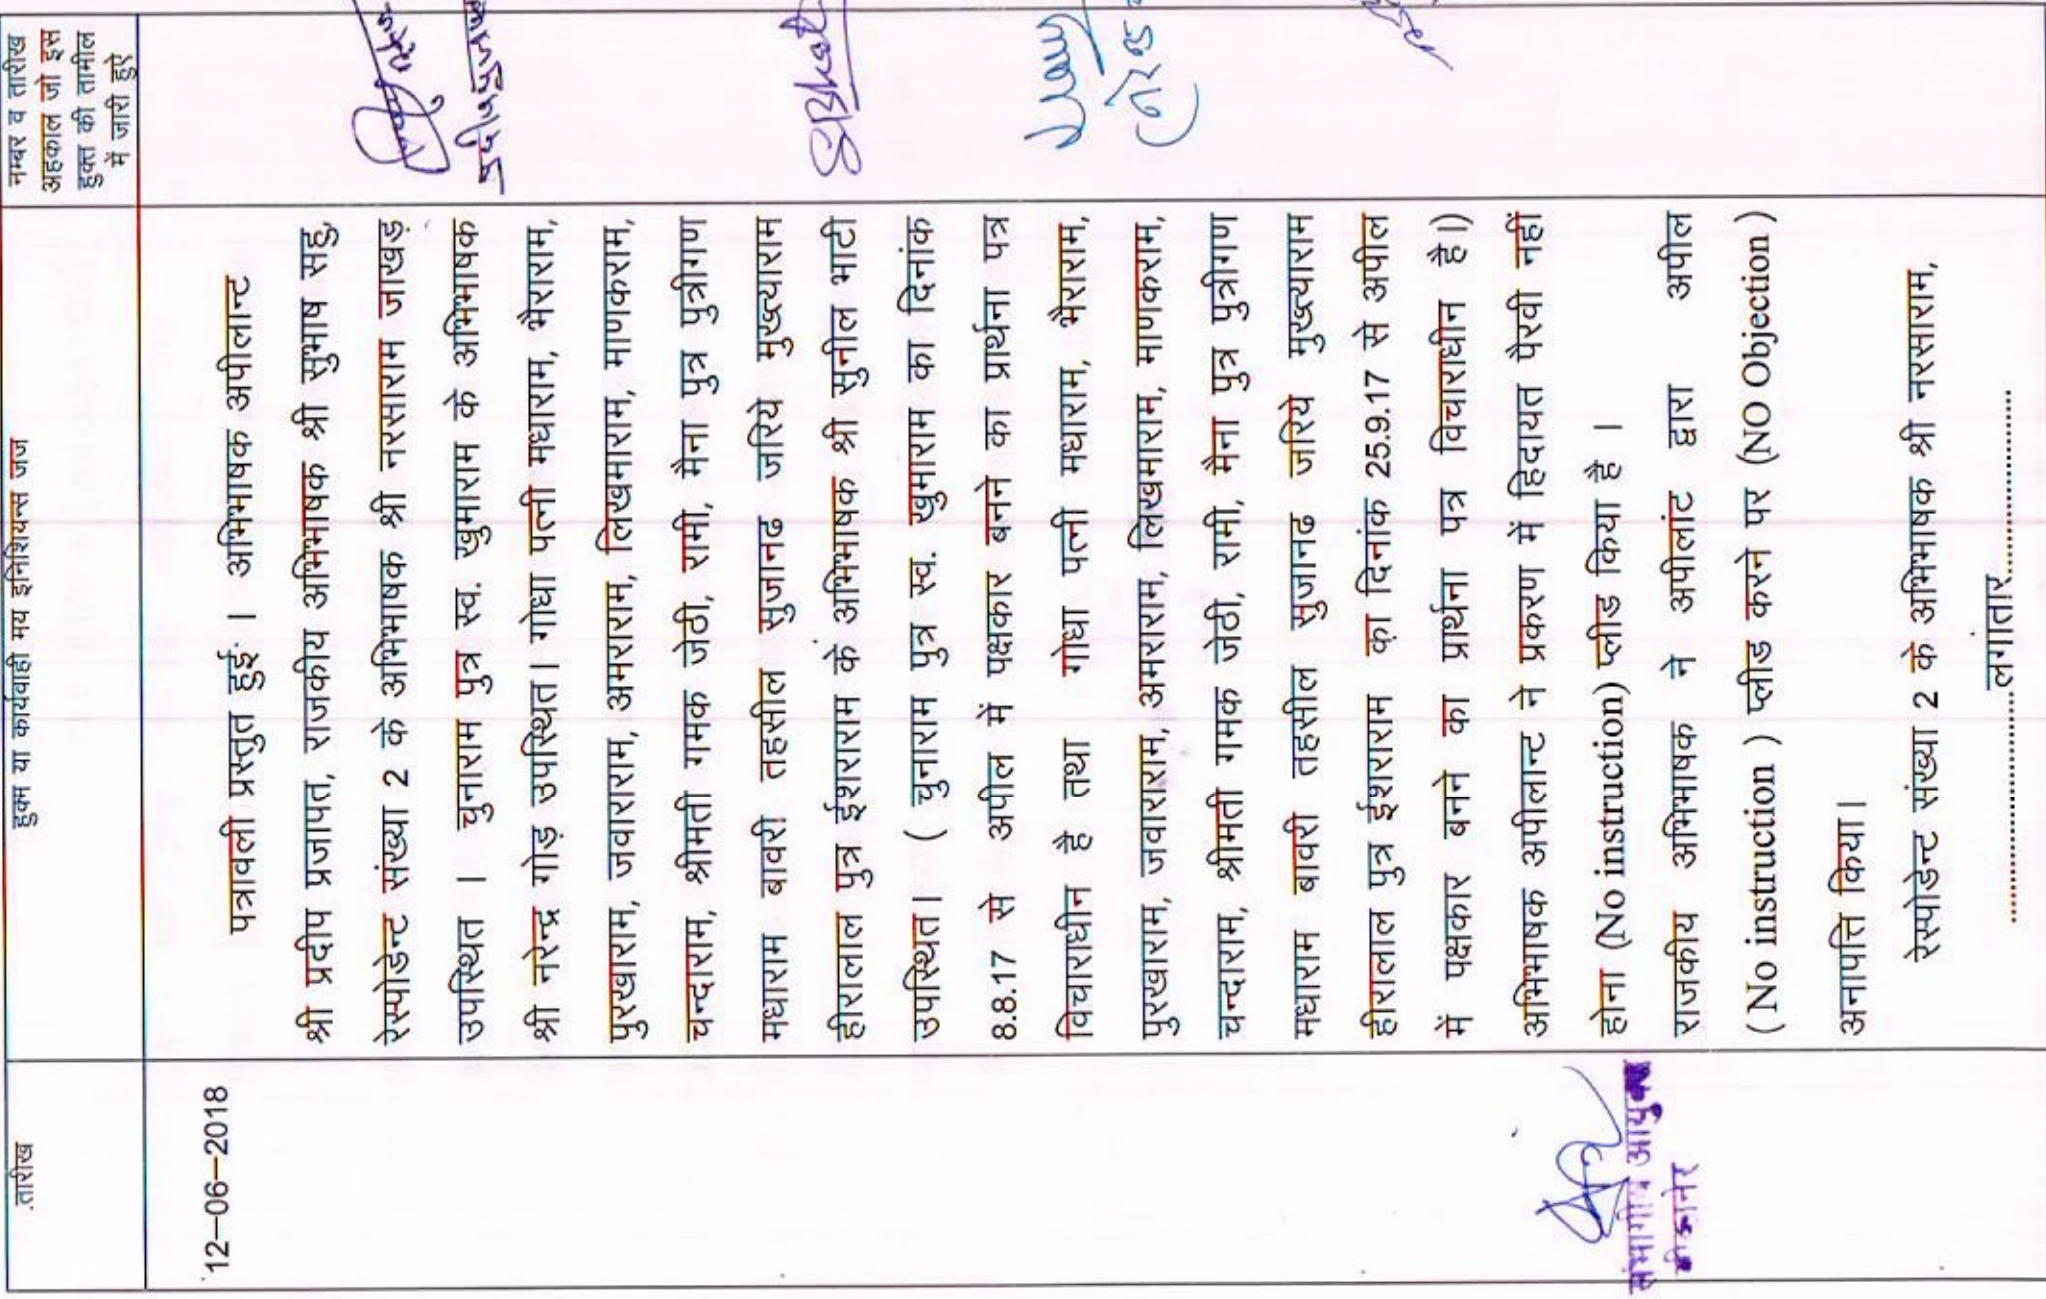 तारीख
हुक्म या कार्यवाही मय इनिशियल्स जज
नम्बर व तारीख
अहकाल जो इस
हुक्म की तामील
में जारी हुरे
12–06–2018
पत्रावली प्रस्तुत हुई । अभिभाषक अपीलान्ट
श्री प्रदीप प्रजापत, राजकीय अभिभाषक श्री सुभाष साहु,
रेस्पोडेन्ट संख्या 2 के अभिभाषक श्री नरसाराम जाखड़
उपस्थित । चुनाराम पुत्र स्व. खुमाराम के अभिभाषक
श्री नरेन्द्र गोड़ उपस्थित। गोधा पत्नी मधाराम, भैराराम,
पुरखाराम, जवाराराम, अमराराम, लिखमाराम, माणकराम,
चन्दाराम, श्रीमती गमक जेठी, रामी, मैना पुत्र पुत्रीगण
मधाराम बावरी तहसील सुजानगढ जरिये मुख्त्याराम
हीरालाल पुत्र ईश्वरराम के अभिभाषक श्री सुनील भाटी
उपस्थित। ( चुनाराम पुत्र स्व. खुमाराम का दिनांक
8.8.17 से अपील में पक्षकार बनने का प्रार्थना पत्र
विचाराधीन है तथा गोधा पत्नी मधाराम, भैराराम,
पुरखाराम, जवाराराम, अमराराम, लिखमाराम, माणकराम,
चन्दाराम, श्रीमती गमक जेठी, रामी, मैना पुत्र पुत्रीगण
मधाराम बावरी तहसील सुजानगढ जरिये मुख्त्याराम
हीरालाल पुत्र ईश्वरराम का दिनांक 25.9.17 से अपील
में पक्षकार बनने का प्रार्थना पत्र विचाराधीन है।)
अभिभाषक अपीलान्ट ने प्रकरण में हिदायत पैरवी नहीं
होना (No instruction) प्लीड किया है ।
राजकीय अभिभाषक ने अपीलांट द्वारा अपील
(No instruction ) प्लीड करने पर (NO Objection )
अनापत्ति किया।
रेस्पोडेन्ट संख्या 2 के अभिभाषक श्री नरसाराम,
..............................लगातार..............................
संभागीय आयुक्त
बीकानेर